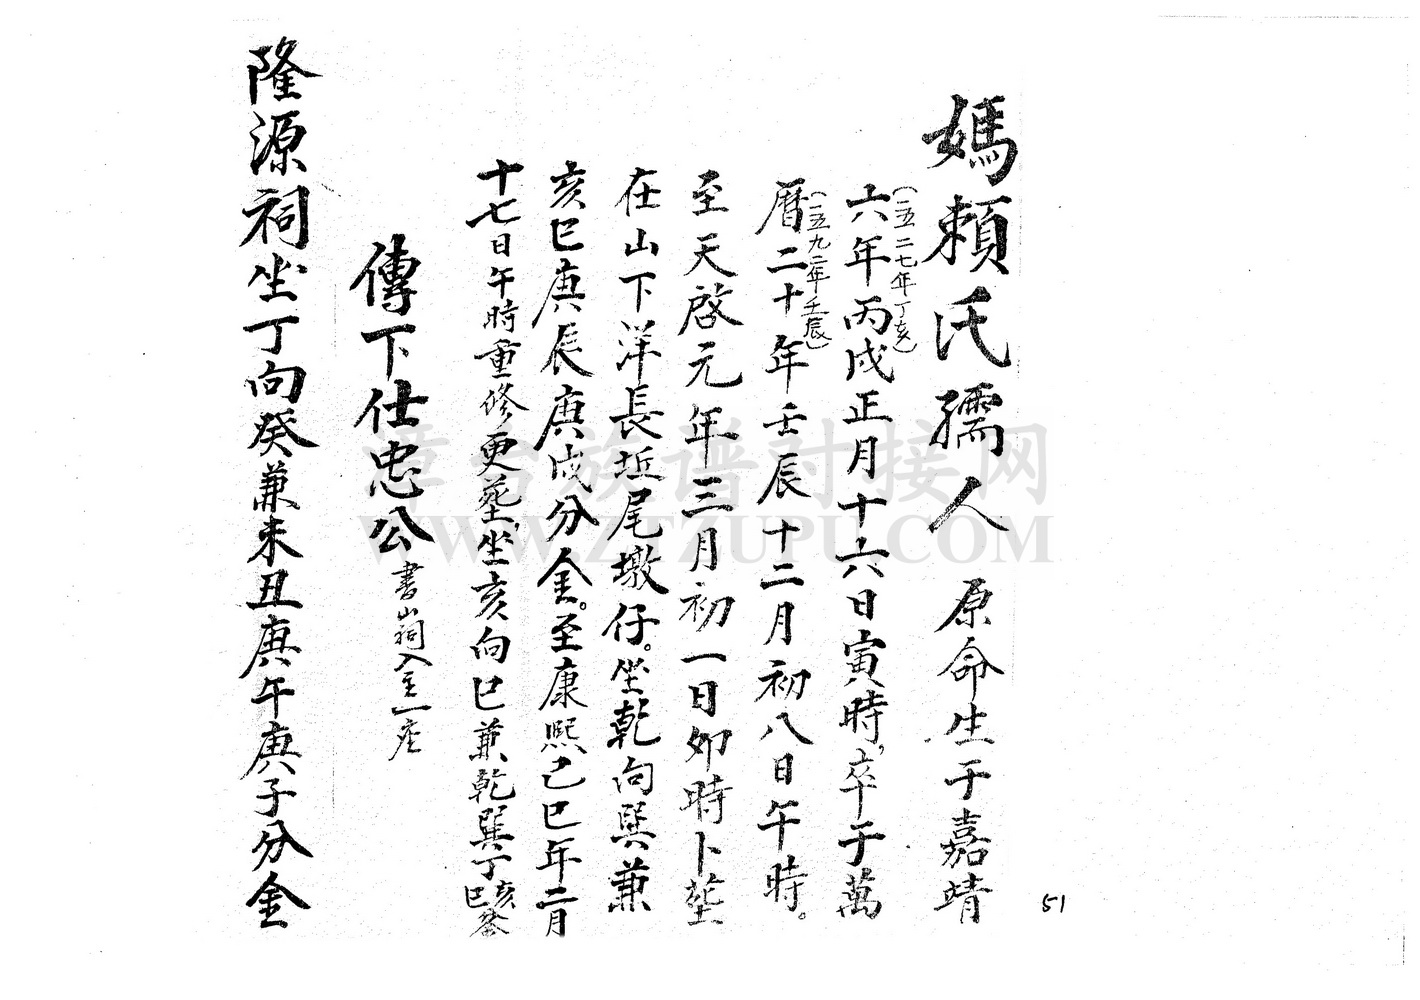 媽賴氏孺人 原命生于嘉靖
六年丙戌正月十六日寅時,卒于萬
(一五二七年丁亥)
曆二十年壬辰十二月初八日午時。
(一五九二年壬辰)
至天啓元年三月初一日卯時卜塟
在山下洋長坵尾墩仔。坐乾向巽兼
亥巳庚辰庚戌分金。至康熙己巳年二月
十七日午時重修更塟,坐亥向巳兼乾巽丁亥丁巳分金
傳下仕忠公 書山祠入主一座
隆源祠坐丁向癸兼未丑庚午庚子分金
51
漳台族谱对接网
WWW.ZTZUPU.COM